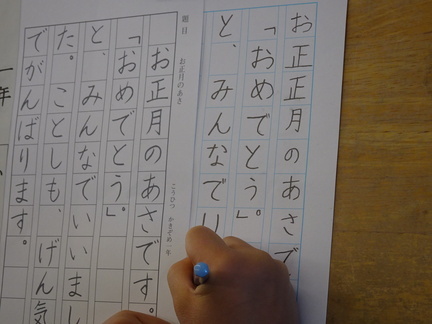 お正月のあさで
「おめでとう」。
と、みんなでい
題目
お正月のあさ
こうひつ かきぞめ 一年
お正月のあさです。
「おめでとう」。
と、みんなでいいまし
た。ことしも、げん気
でがんばります。
一年